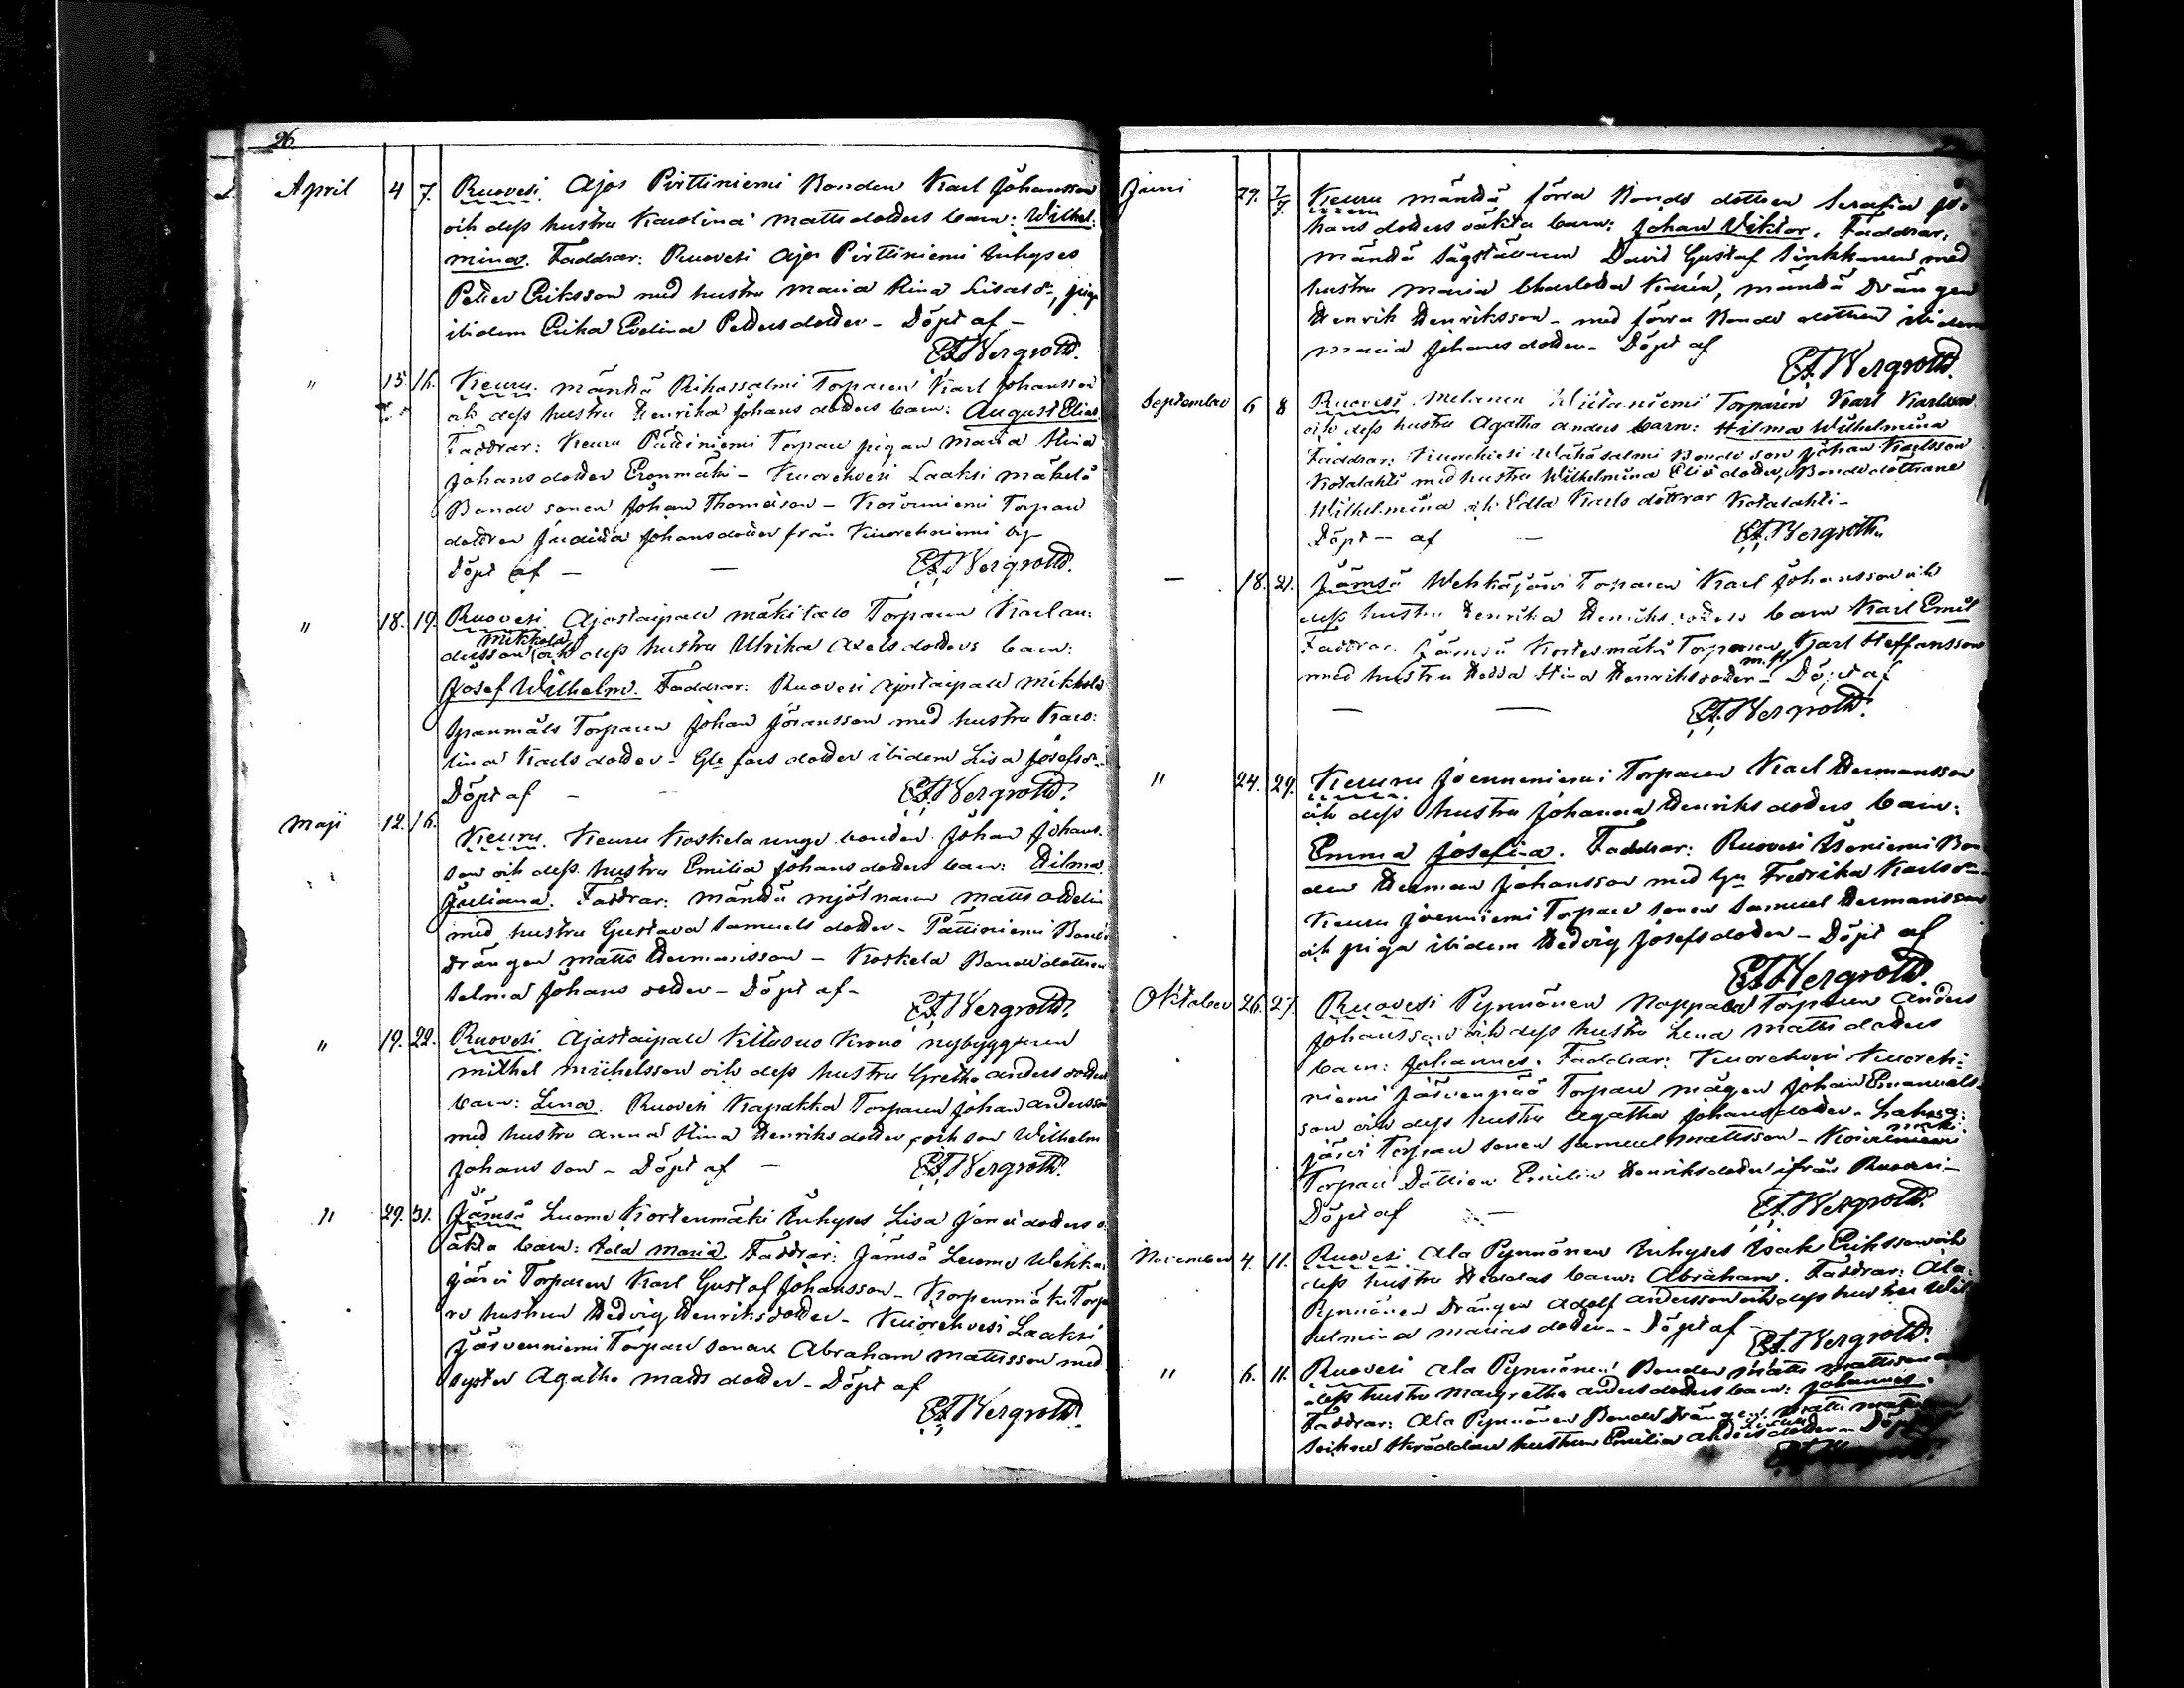 26.
April 4 7. Ruovesi. Ajos Pirttiniemi Bonden Karl Johansson
och dess hustru Karolina Mattsdotters barn: Wilhel:
mina. Faddrar: Ruovesi Ajos Pirttiniemi Inhyses
Petter Eriksson med hustru Maria Stina Lisasdr, piga
ibidem Erika Evelina Pettersdotter - Döpt af -
Bergroth.
" 15. 16. Keuru. Mänttä Riihassalmi Torparen Karl Johansson
och dess hustru Henrika Johansdotters barn: August Elias
Faddrar: Keuru Torpare pigan Maria Stina
Johansdotter Eronmäki - Kuorehvesi Laaksi Mäkelä
Bonde sonen Johan Thomasson - Koivuniemi Torpare
dottren Johansdotter från Kuorehniemi by
Döpt af - - Bergroth.
" 18. 19. Ruovesi. Ajostaipale Mäkitalo Torparen Karl An:
dersson Mikkola och dess hustru Ulrika Axelsdotters barn:
Josef Wilhelm. Faddrar: Ruovesi Ajostaipale Mikkola
Spannmåls Torparen Johan Göransson med hustru Karo:
lina Karlsdotter - dotter ibidem Lisa Josefsdr
Döpt af - - Bergroth.
Maji 12. 16. Keuru. Keuru Koskela unge bonden Johan Johans:
son och dess hustru Emilia Johansdotters barn: Hilma
Juliana. Faddrar: Mänttä mjölnaren Matts
med hustru Gustava Samuelsdotter - Pättiniemi Bonde
drängen Matts Hermansson - Koskela Bonde dottren
Selma Johansdotter - Döpt af -
Bergroth.
" 19. 22. Ruovesi. Ajostaipale Kitosuo Krono nybyggaren
Mikkel Mickelsson och dess hustru Gretha Andersdotters
barn: Lena. Ruovesi Kapakka Torparen Johan Andersson
med hustru Anna Stina Henriksdotter, och son Wilhelm
Johansson - Döpt af - Bergroth.
" 29. 31. Jämsä Luomo Kortenmäki Inhyses Lisa dotters o:
äkta barn: Ida Maria. Faddrar: Jämsä Luomo Wehka:
järvi Torparen Karl Gustaf Johansson - Korpenmäki Torpa
re hustrun Hedvig Henriksdotter - Kuorehvesi Laaksi
Järvenniemi Torpare sonen Abraham Mattsson med
syster Agatha Mattsdotter - Döpt af
Bergroth.
Juni 29. 7/7. Keuru Mänttä förra Bonde dottren Serafia Jo:
hansdotters oäkta barn: Johan Viktor. Faddrar:
Mänttä Sågställaren David Gustaf Sinkkanen med
hustru Maria Charlotta Karin, Mänttä Drängen
Henrik Henriksson - med förra Bonde dottren ibidem
Maria Johansdotter - Döpt af
Bergroth.
September 6 8 Ruovesi Melanen Wiitaniemi Torparen Karl Karlsson
och dess hustru Agatha Anders barn: Hilma Wilhelmina
Faddrar: Kuorehvesi Wähäsalmi Bonde son Johan Karlsson
Kotalahti med hustru Wilhelmina Eliedotter, Bonde döttrarne
Wilhelmina och Edla Karls döttrar Kotalahti -
Döpt - af - Bergroth.
- 18. 21. Jämsä Wehkajärvi Torparen Karl Johansson och
dess hustru Henrika Henriksdotters barn Karl Emil
Faddrar: Jämsä Kortesmäki Torparen Karl Steffansson
med hustru Hedda Stina Henriksdotter - m.fl. Döpt af
- - Bergroth.
" 24. 29. Keuru Joenniemi Torparen Karl Hermansson
och dess hustru Johanna Henriksdotters barn:
Emma Josefina. Faddrar: Ruovesi Bon
den Herman Johansson med hu Fredrika Karlsdr
Keuru Joenniemi Torpare sonen Samuel Hermansson
och piga ibidem Hedvig Josefsdotter - Döpt af
Bergroth.
Oktober 26. 27. Ruovesi Pynnönen Noppala Torparen Anders
Johansson och dess hustru Lena Mattsdotters
barn: Johannes. Faddrar: Kuorehvesi Kuoreh:
niemi Järvenpää Torpare mågen Johan Emanuels:
son och dess hustru Agatha Johansdotter -
järvi Torpare sonen Samuel Mattsson -
Torpare Dottren Emilia Henriksdotter ifrån Ruovesi -
Döpt af - Bergroth.
November 4. 11. Ruovesi Ala Pynnönen Inhyses Isak Eriksson och
dess hustru Heddas barn: Abraham. Faddrar: Ala
Pynnönen Drängen Adolf Andersson och dess hustru Wil
helmina Mariasdotter - - Döpt af -
Bergroth.
" 6. 11. Ruovesi Ala Pynnönen Bonden Matts Mattsson och
dess hustru Margretha Andersdotters barn: Johannes.
Faddrar: Ala Pynnönen Bonde Drängen Matts
Skräddare hustrun Emilia Andersdotter - Döpt af